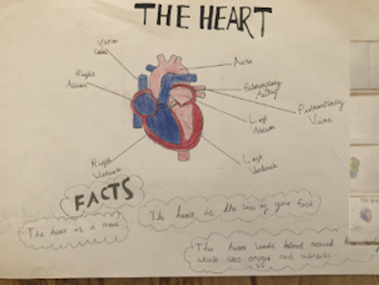 THE HEART
Vena
Cava
Right
Atrium
Aorta
Pulmonary
Artery
Pulmonary
Left
Atrium
Right
Left
FACTS
The heart is the size of your fist
The heart is a
The heart sends blood around the body
which has oxygen and nutrients